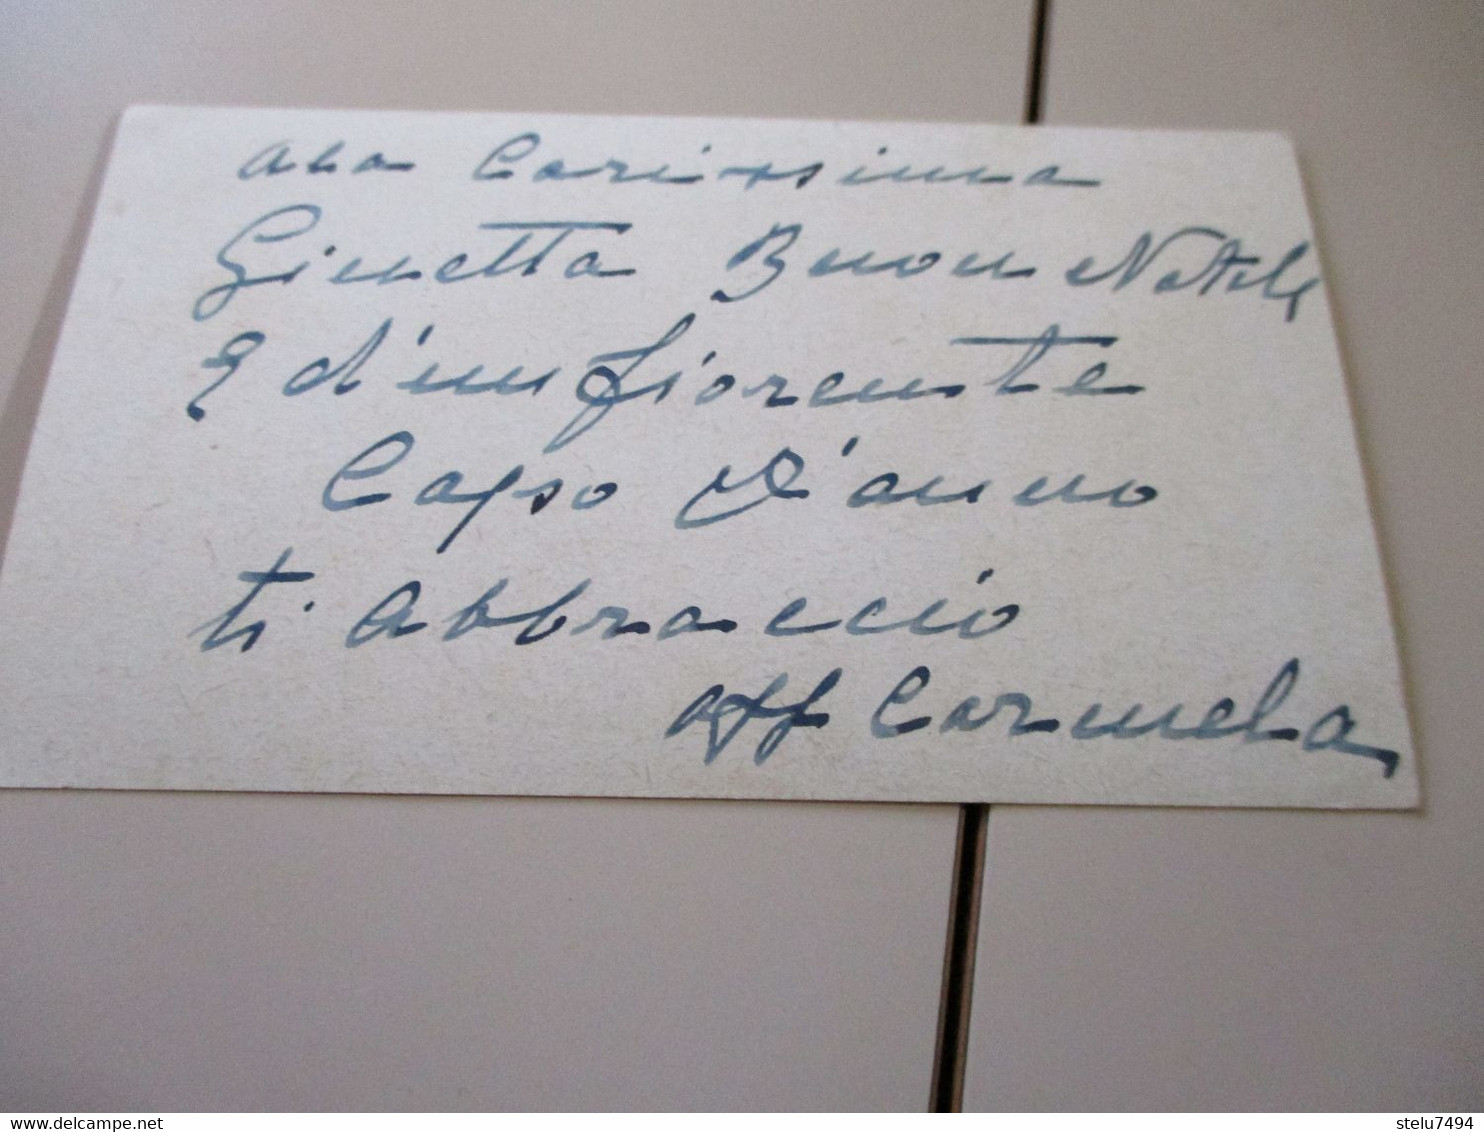 Ala Carissima
Ginetta Buon Natale
E d'un fiorente
Capo D'anno
ti Abbraccio
aff Carmela
delcampe.net
stelu7494